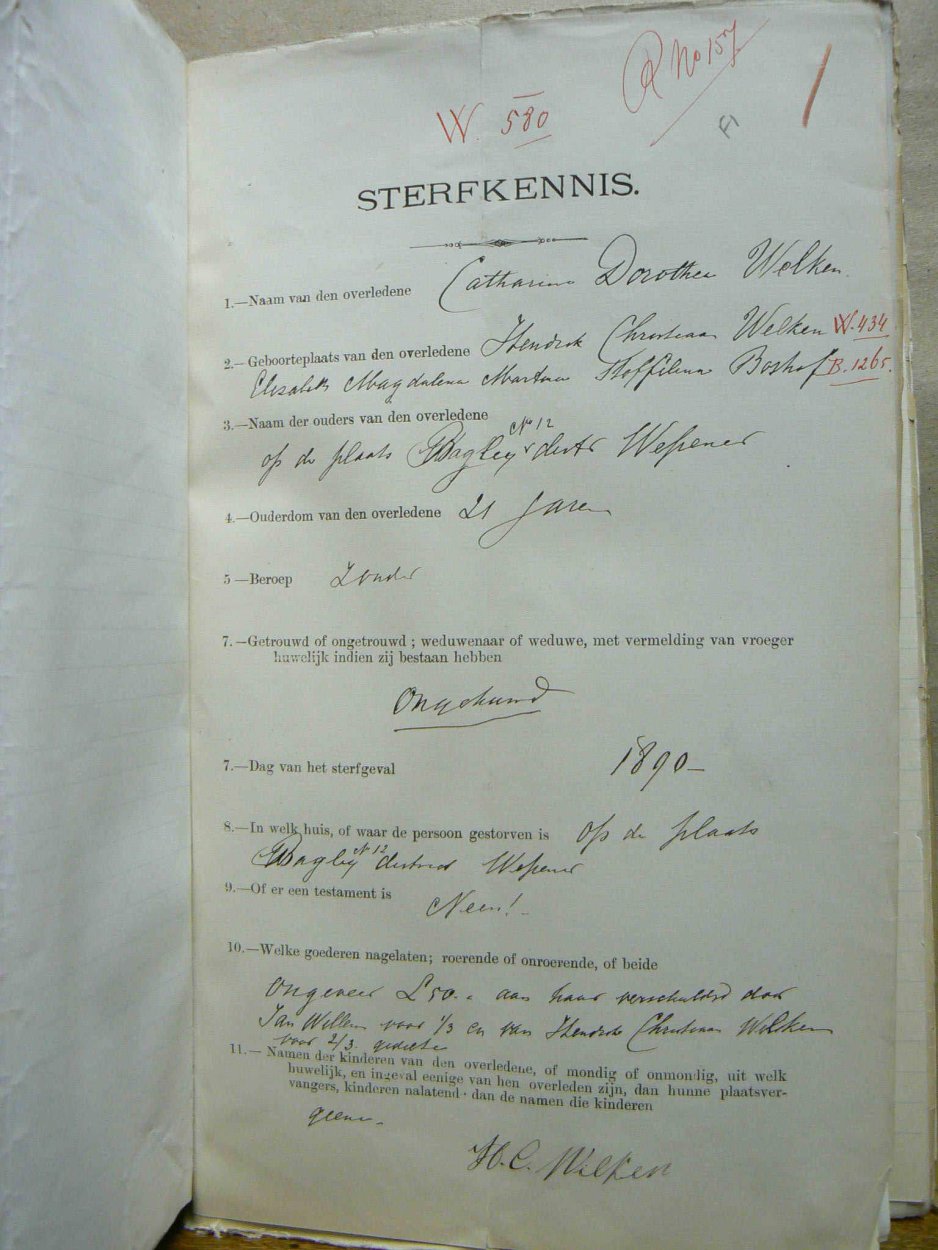 R No 157
W. 580
F1
STERFKENNIS.
1.—Naam van den overledene Catharina Dorothea Welken.
2.—Geboorteplaats van den overledene Hendrik Christiaan Welken W. 434
Elizabeth Magdalena Martina Stoffelina Boshof B. 1265.
3.—Naam der ouders van den overledene
op de plaats Bagley No 12 distr Wepener
4.—Ouderdom van den overledene 21 Jaren
5—Beroep Zonder
7.—Getrouwd of ongetrouwd; weduwenaar of weduwe, met vermelding van vroeger
huwelijk indien zij bestaan hebben
Ongehuwd
7.—Dag van het sterfgeval 1890—
8.—In welk huis, of waar de persoon gestorven is op de plaats
Bagley No 12 district Wepener
9.—Of er een testament is Neen!
10.—Welke goederen nagelaten; roerende of onroerende, of beide
Ongeveer £50.. aan haar verschuldigd door
Jan Willem voor 1/3 en van Hendrik Christiaan Wilken
voor 2/3
11.— Namen der kinderen van den overledene, of mondig of onmondig, uit welk
huwelijk, en ingeval eenige van hen overleden zijn, dan hunne plaatsver-
vangers, kinderen nalatend · dan de namen die kinderen
geene.
H. C. Wilken